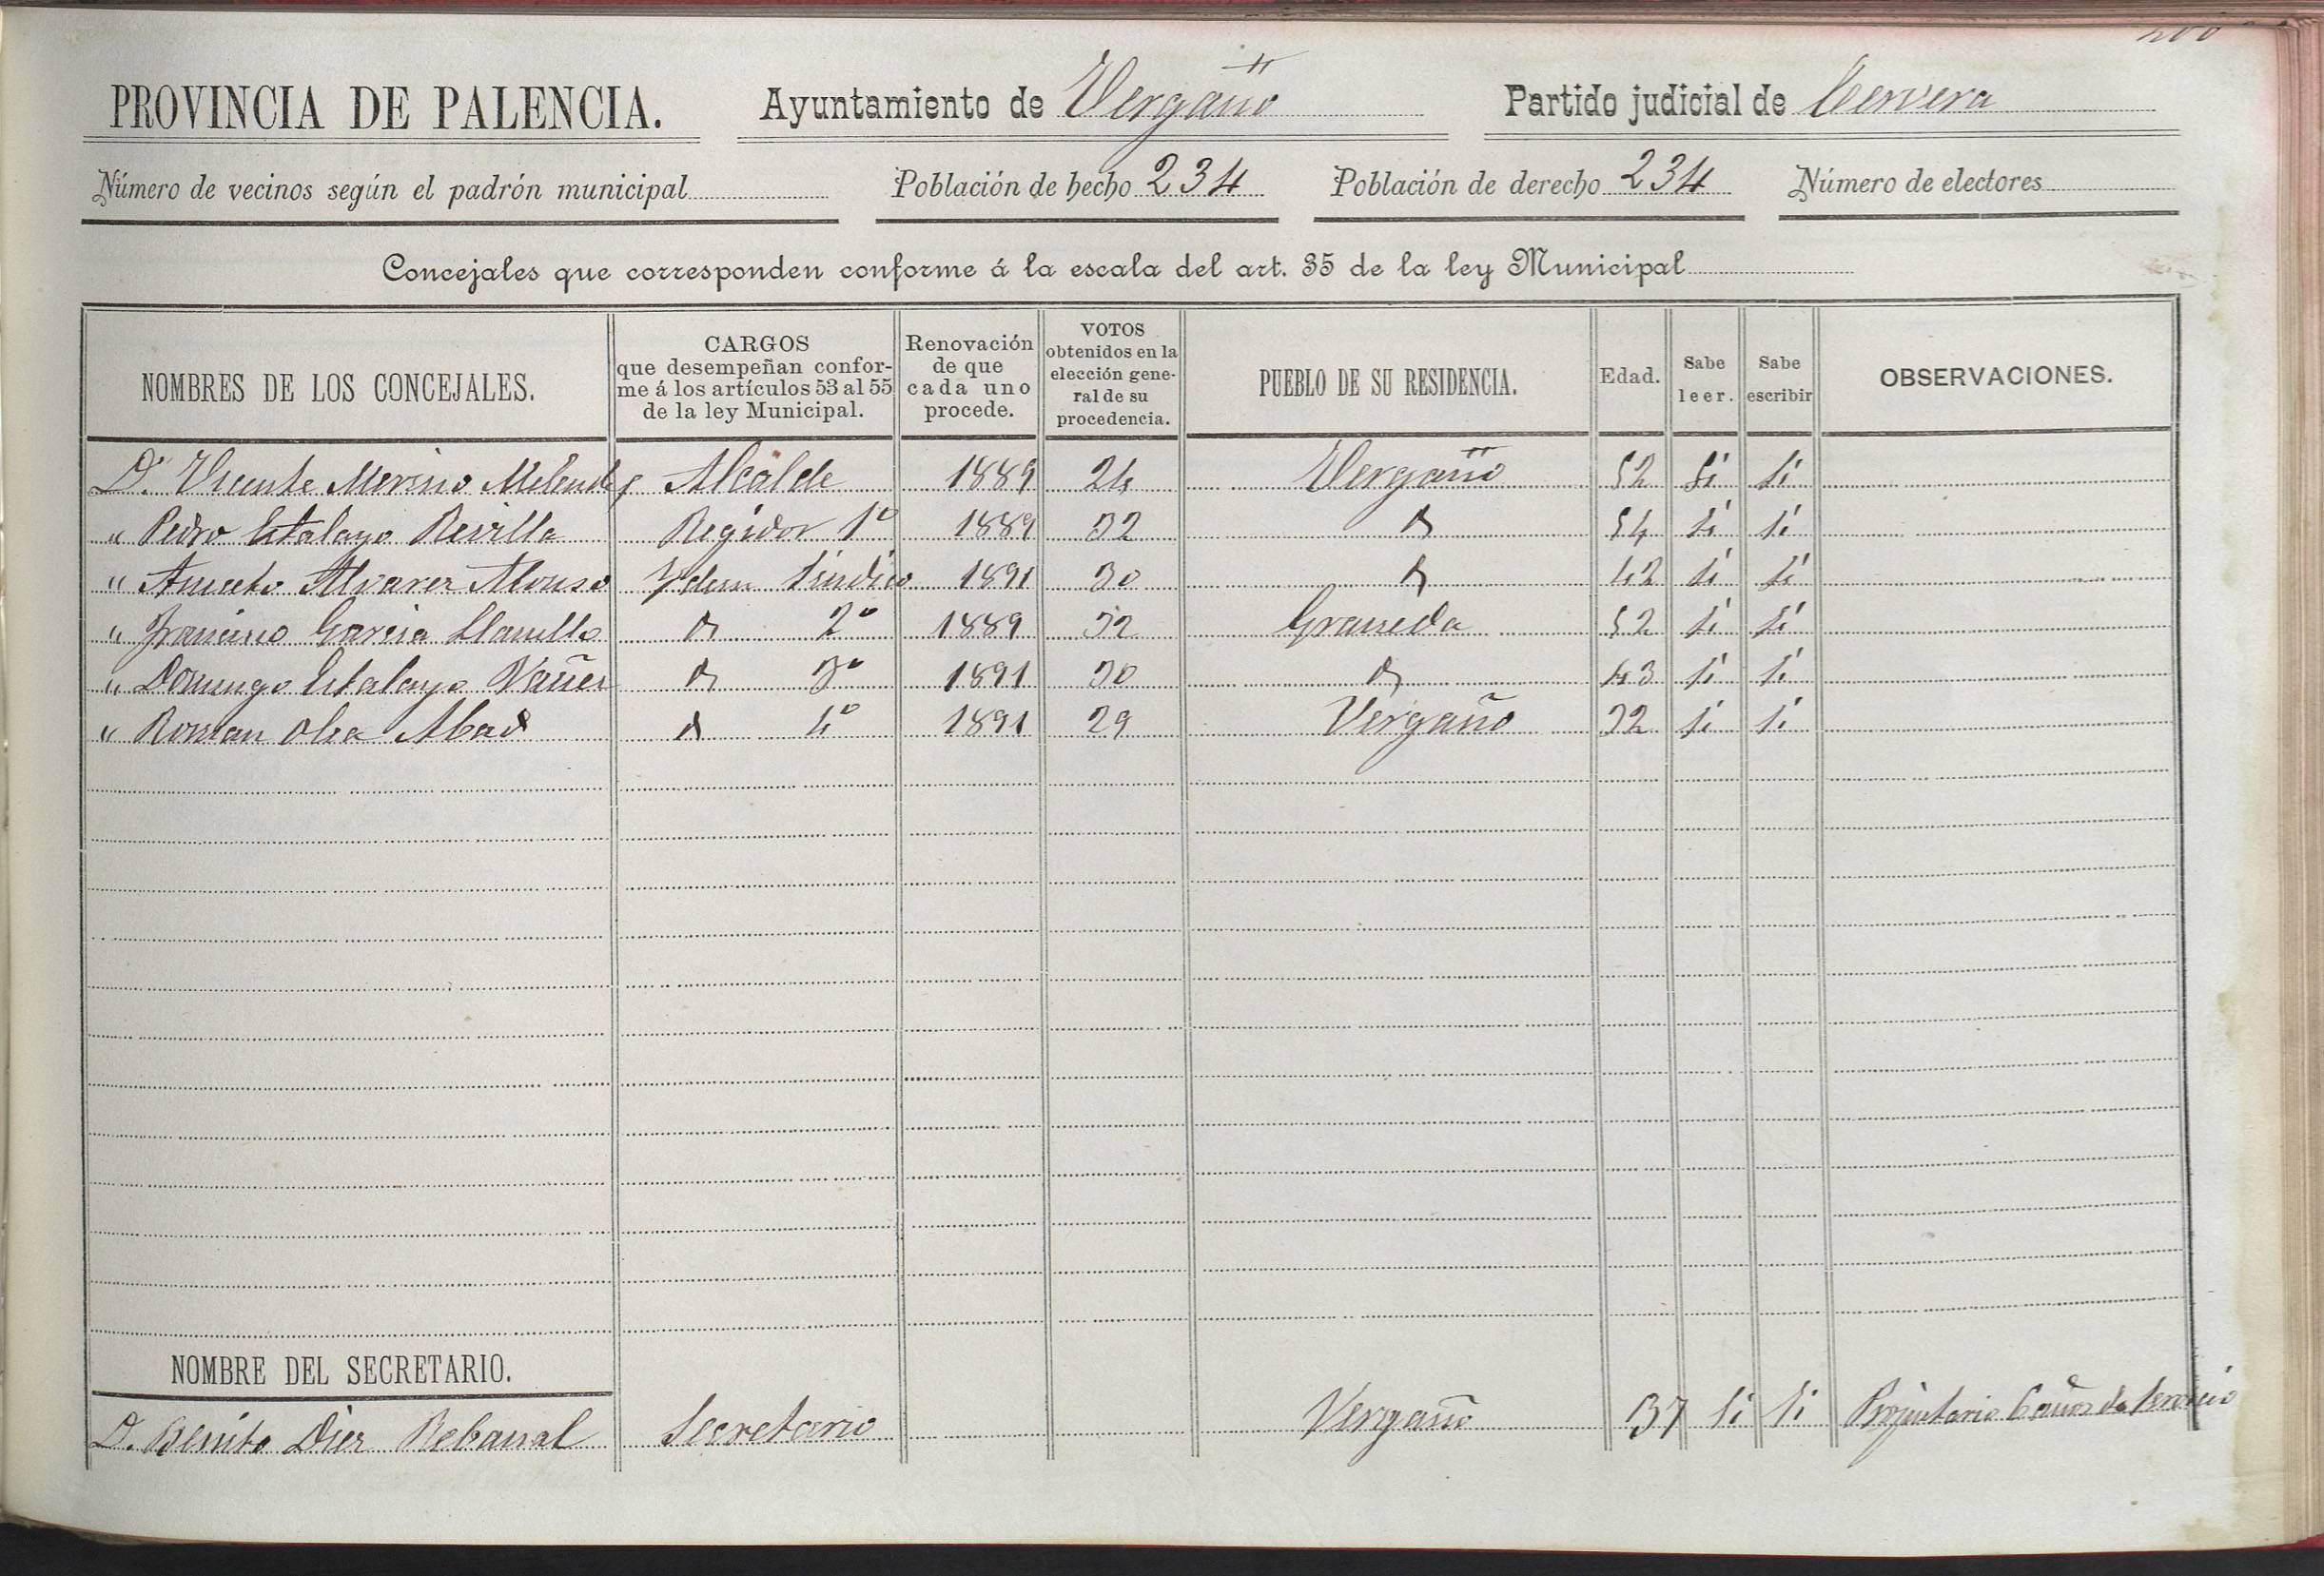 PROVINCIA DE PALENCIA. Ayuntamiento de Vergaño Partido judicial de Cervera
Número de vecinos según el padrón municipal Población de hecho 234 Población de derecho 234 Número de electores
Concejales que corresponden conforme á la escala del art. 35 de la ley Municipal
NOMBRES DE LOS CONCEJALES. CARGOS que desempeñan conforme á los artículos 53 al 55 de la ley Municipal. Renovación de que cada uno procede. VOTOS obtenidos en la elección general de su procedencia. PUEBLO DE SU RESIDENCIA. Edad. Sabe leer. Sabe escribir OBSERVACIONES.
D. Vicente Merino Melendez Alcalde 1889 24 Vergaño 52 Si Si
" Pedro Estalayo Revilla Regidor 1º 1889 32 d 54 si si
" Aniceto Alvarez Alonso Ydem Sindico 1891 30 d 42 si si
" Francisco Garcia Llanillo d 2º 1889 32 Graneda 52 si si
" Domingo Estalayo d 3º 1891 30 d 43 si si
" Roman Olea Abad d 4º 1891 29 Vergaño 32 si si
NOMBRE DEL SECRETARIO.
D. Benito Diez Rebanal Secretario Vergaño 37 Si Si Propietario 6 años de servicio